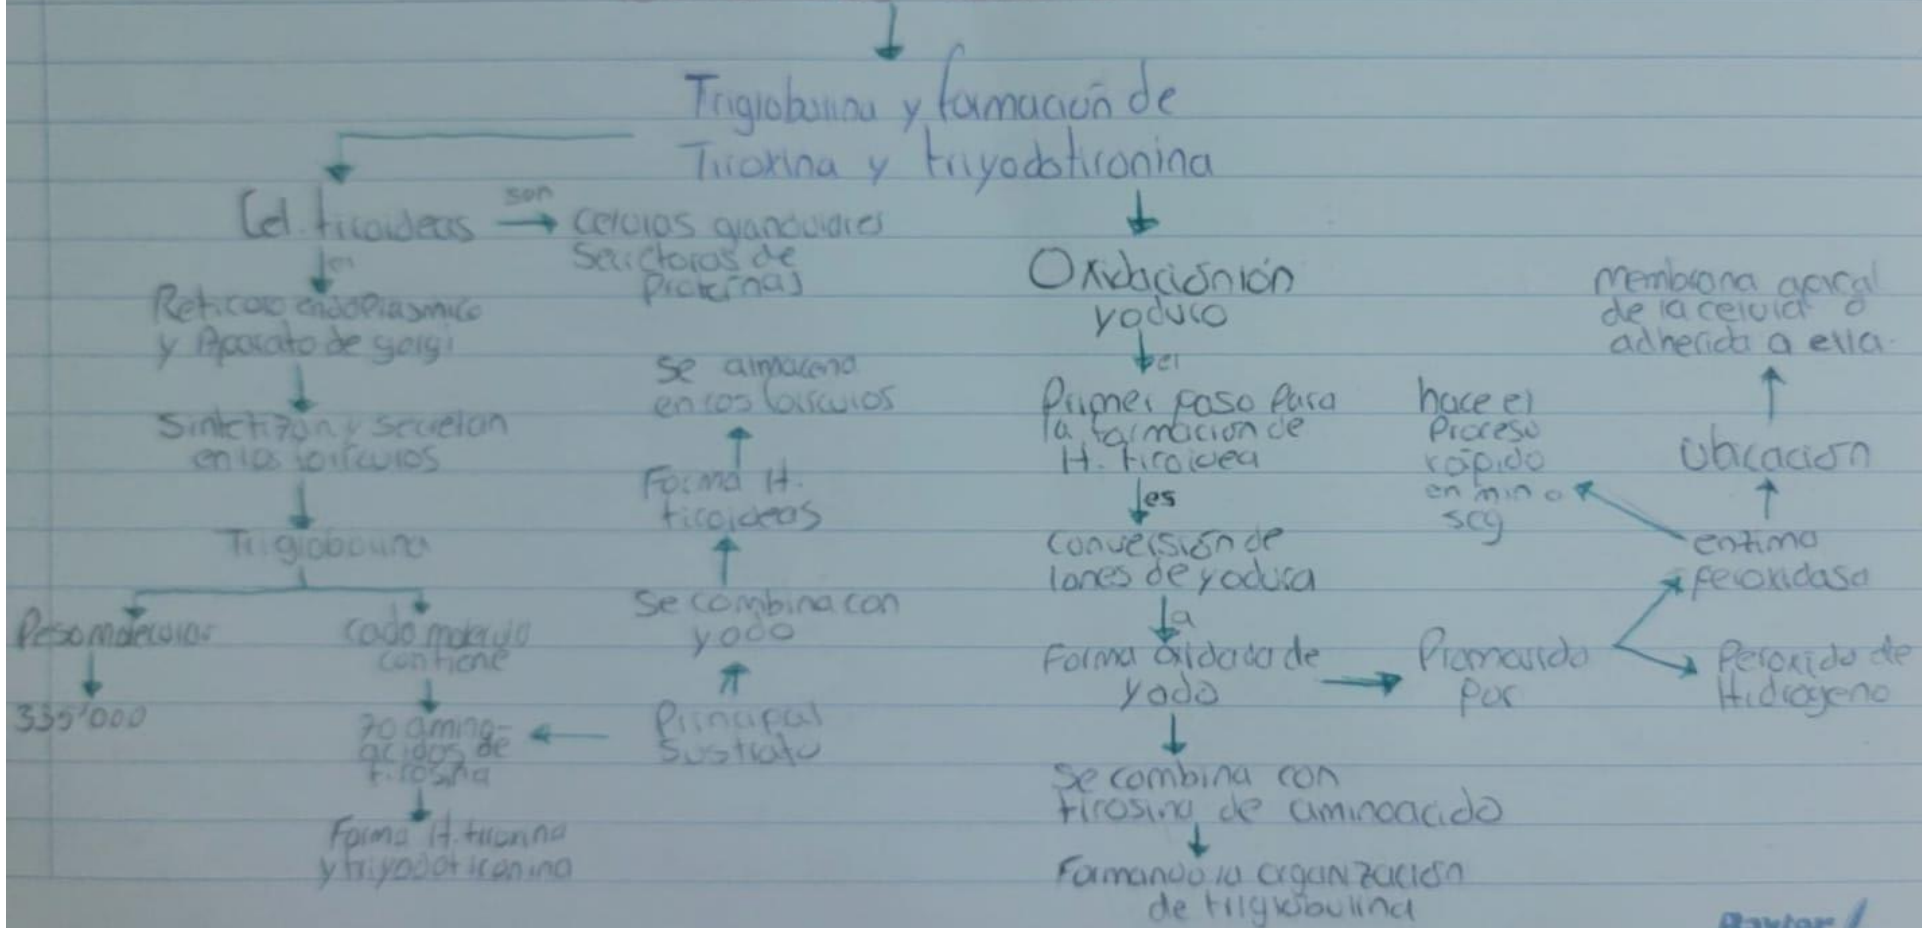 Trigiobulina y formación de
Tiroxina y triyodotironina
Cel. tiroideas
son
celulas glandulares
Secretoras de
Proteínas
el
Reticulo endoplasmico
y Aparato de golgi
Sintetizan y secretan
en los folículos
Triglobulina
Peso molecular
335'000
Cada molecula
contiene
70 amino-
acidos de
tirosina
Forma H. tironina
y triyodotironina
Principal
Sustrato
Se combina con
yodo
Forma H.
tiroideas
Se almacena
en los folículos
Oxidación ión
yoduro
el
Primer paso para
la formacion de
H. tiroidea
es
Conversión de
iones de yodura
a
Forma oxidada de
yodo
Se combina con
tirosina de aminoacido
Formando la organización
de tilglobulina
Promovido
por
enzima
peroxidasa
Peroxido de
Hidrogeno
hace el
Proceso
rápido
en min o
seg
Ubicación
membrana apical
de la celula o
adherida a ella.